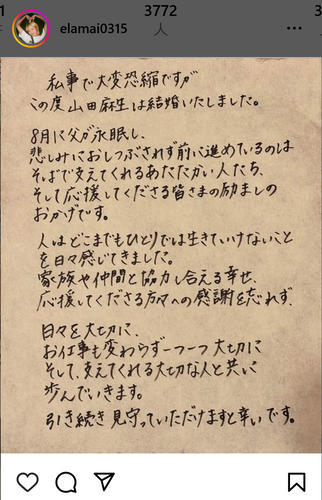 3772
人
elamai0315
私事で大変恐縮ですが
この度山田麻生は結婚いたしました。
8月に父が永眠し、
悲しみにおしつぶされず前に進めているのは
そばで支えてくれるあたたかい人たち、
そして応援してくださる皆さまの励ましの
おかげです。
人はどこまでもひとりでは生きていけないこと
を日々感じてきました。
家族や仲間と協力し合える幸せ、
応援してくださる方々への感謝を忘れず、
日々を大切に、
お仕事も変わらず一つ一つ大切に
そして、支えてくれる大切な人と共に
歩んでいきます。
引き続き見守っていただけますと幸いです。